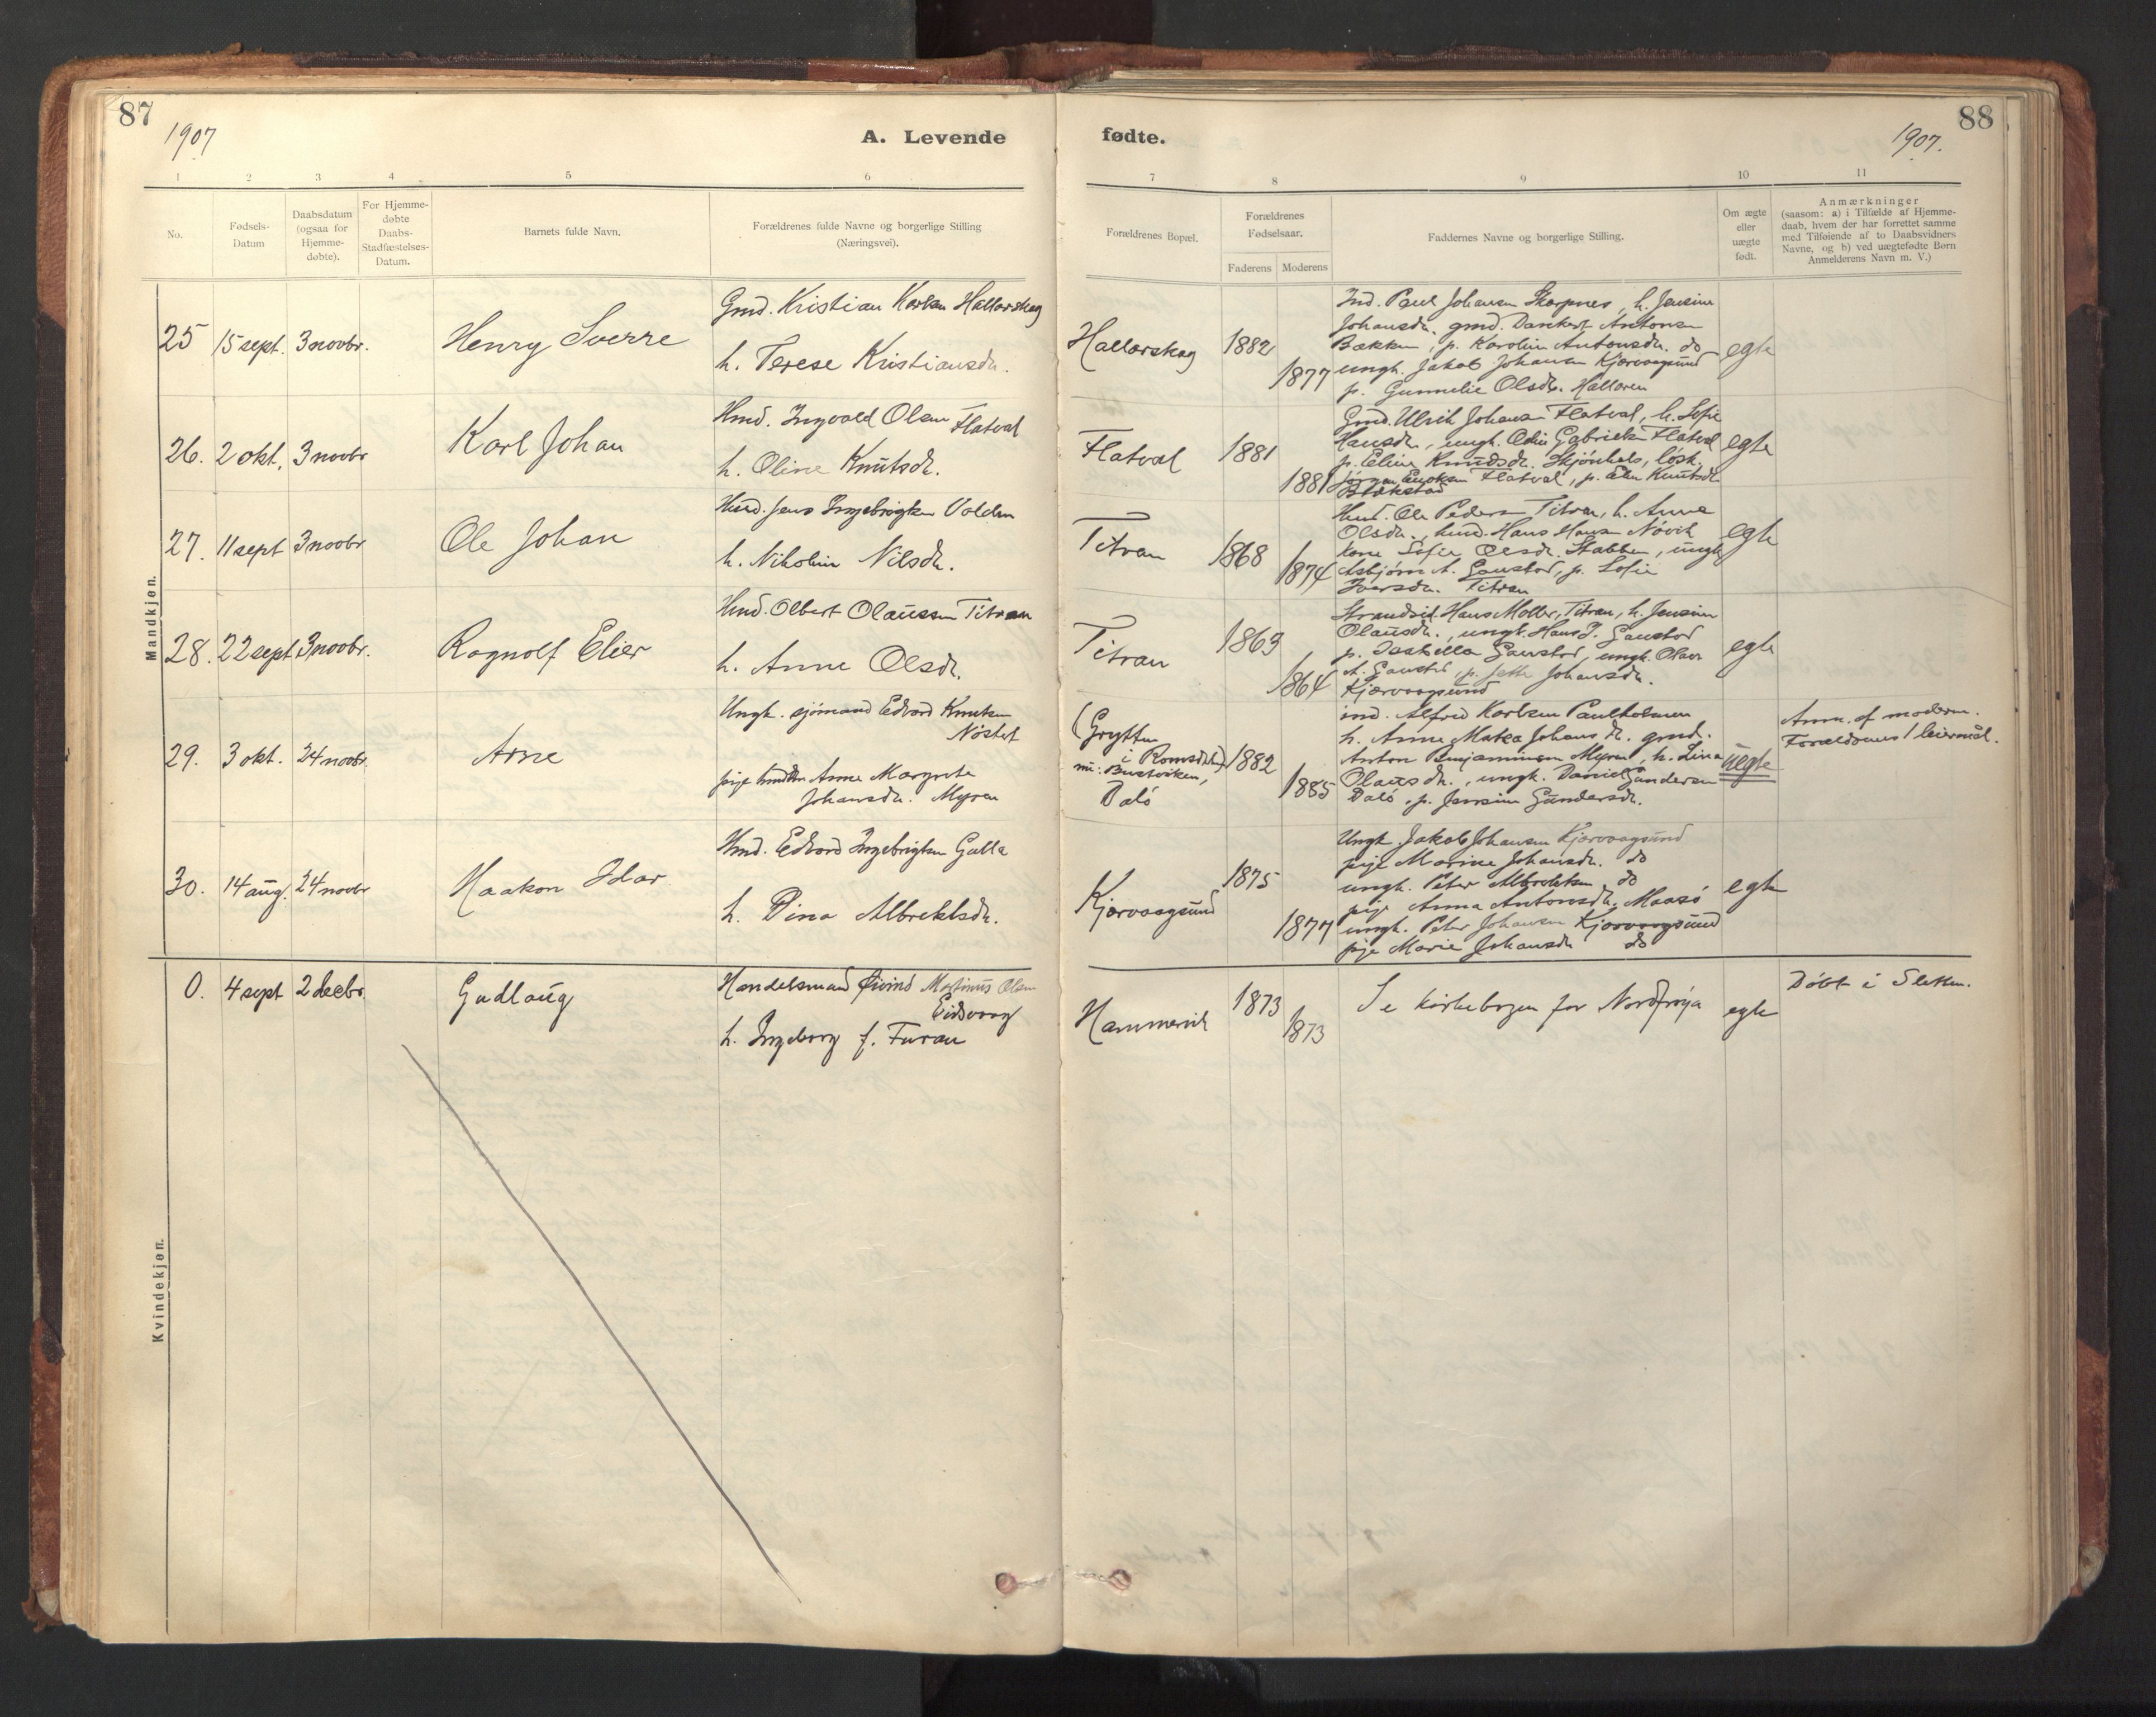 87
1907
A. Levende
1 2 3 4 5 6
No.
Fødsels-
Datum
Daabsdatum
(ogsaa for
Hjemme-
døbte).
For Hjemme-
døbte
Daabs-
Stadfæstelses-
Datum.
Barnets fulde Navn.
Forældrenes fulde Navne og borgerlige Stilling
(Næringsvei).
Mandkjøn.
25 15 sept. 3 novbr. Henry Sverre
Gmd. Kristian Karlsen Hallarskag
h. Terese Kristiansdr.
26. 2 okt. 3 novbr Karl Johan
Hmd. Ingvald Olsen Flatval
h. Oline Knutsdr.
27. 11 sept 3 novbr Ole Johan
Hmd. Jens Ingebrigtsen Volden
h. Nikolin Nilsdr.
28. 22 sept 3 novbr. Ragnolf Elier
Hmd. Olbert Olaussen Titran
h. Anne Olsdr.
29. 3 okt. 24 novbr. Arne
Ungk. sjömand Edvard Knutsen
Nöstet
pige Anne Margrete
Johansdr. Myren
30. 14 aug. 24 novbr Haakon Idar
Hmd. Edvard Ingebrigtsen Galla
h. Dina Albrektsdr.
Kvindekjøn.
0. 4 sept 2 decbr. Gudlaug
Handelsmand Øivind Martinus Olsen
Eidsvaag
h. Ingeborg f. Furan
88
1907.
fødte.
7 8 9 10 11
Forældrenes Bopæl.
Forældrenes
Fødselsaar.
Faderens Moderens
Faddernes Navne og borgerlige Stilling.
Om ægte
eller
uægte
født.
Anmærkninger
(saasom: a) i Tilfælde af Hjemme-
daab, hvem der har forrettet samme
med Tilføiende af to Daabsvidners
Navne, og b) ved uægtefødte Børn
Anmelderens Navn m. V.)
Hallarskag 1882 1877
Ind. Paul Johansen Skarpnes, h. Jensine
Johansdr. gmd. Danckert Antonsen
Bakken, p. Karolin Antonsdr. do
ungk. Jakob Johansen Kjervaagsund
p. Gunnelie Olsdr. Hallaren
egte
Flatval 1881 1881
Gmd. Ulrik Johansen Flatval, h. Sofie
Hansdr., ungk. Odin Gabrielsen Flatval
p. Eline Knudsdr. Skjönhals, lösk.
Jörgen Flatval, p. Elen Knutsdr
egte
Titran 1868 1874
Hmd. Ole Pedersen Titran, h. Anne
Olsdr., hmd. Hans Hansen Növik
kone Sofie Olsdr. Stabben, ungk
Asbjörn A. Gaustad, p. Sofie
Iversdr. Titran
egte
Titran 1863 1864
Strandsid. Hans Moller, Titran, h. Jensine
Olausdr., ungk. Hans J. Gaustad
p. Isabella Gaustad, ungk. Olaus
A. Gaustad, p. Jette Johansdr.
Kjervaagsund
egte
(Grytten
i Romsdal)
nu: Bustviken,
Dalö
1882 1885
ind. Alfred Karlsen Paulholmen
h. Anne Matea Johansdr. gmd.
Anton Benjaminsen Myren, h. Lina
Olausdr., ungk. Daniel Gundersen
Dalö, p. Jensine Gundersdr.
uegte
Anm. af moderen.
Foreldrenes 1 leiermål.
Kjervaagsund 1875 1877
Ungk. Jakob Johansen Kjervaagsund
pige Marine Johansdr. do
ungk. Peter Albrektsen do
pige Anna Antonsdr. Maasö
ungk. Peter Johansen Kjervaagsund
pige Marie Johansdr do
egte
Hammervik 1873 1873
Se kirkebogen for Nordfröya
egte
Döbt i Sletten.